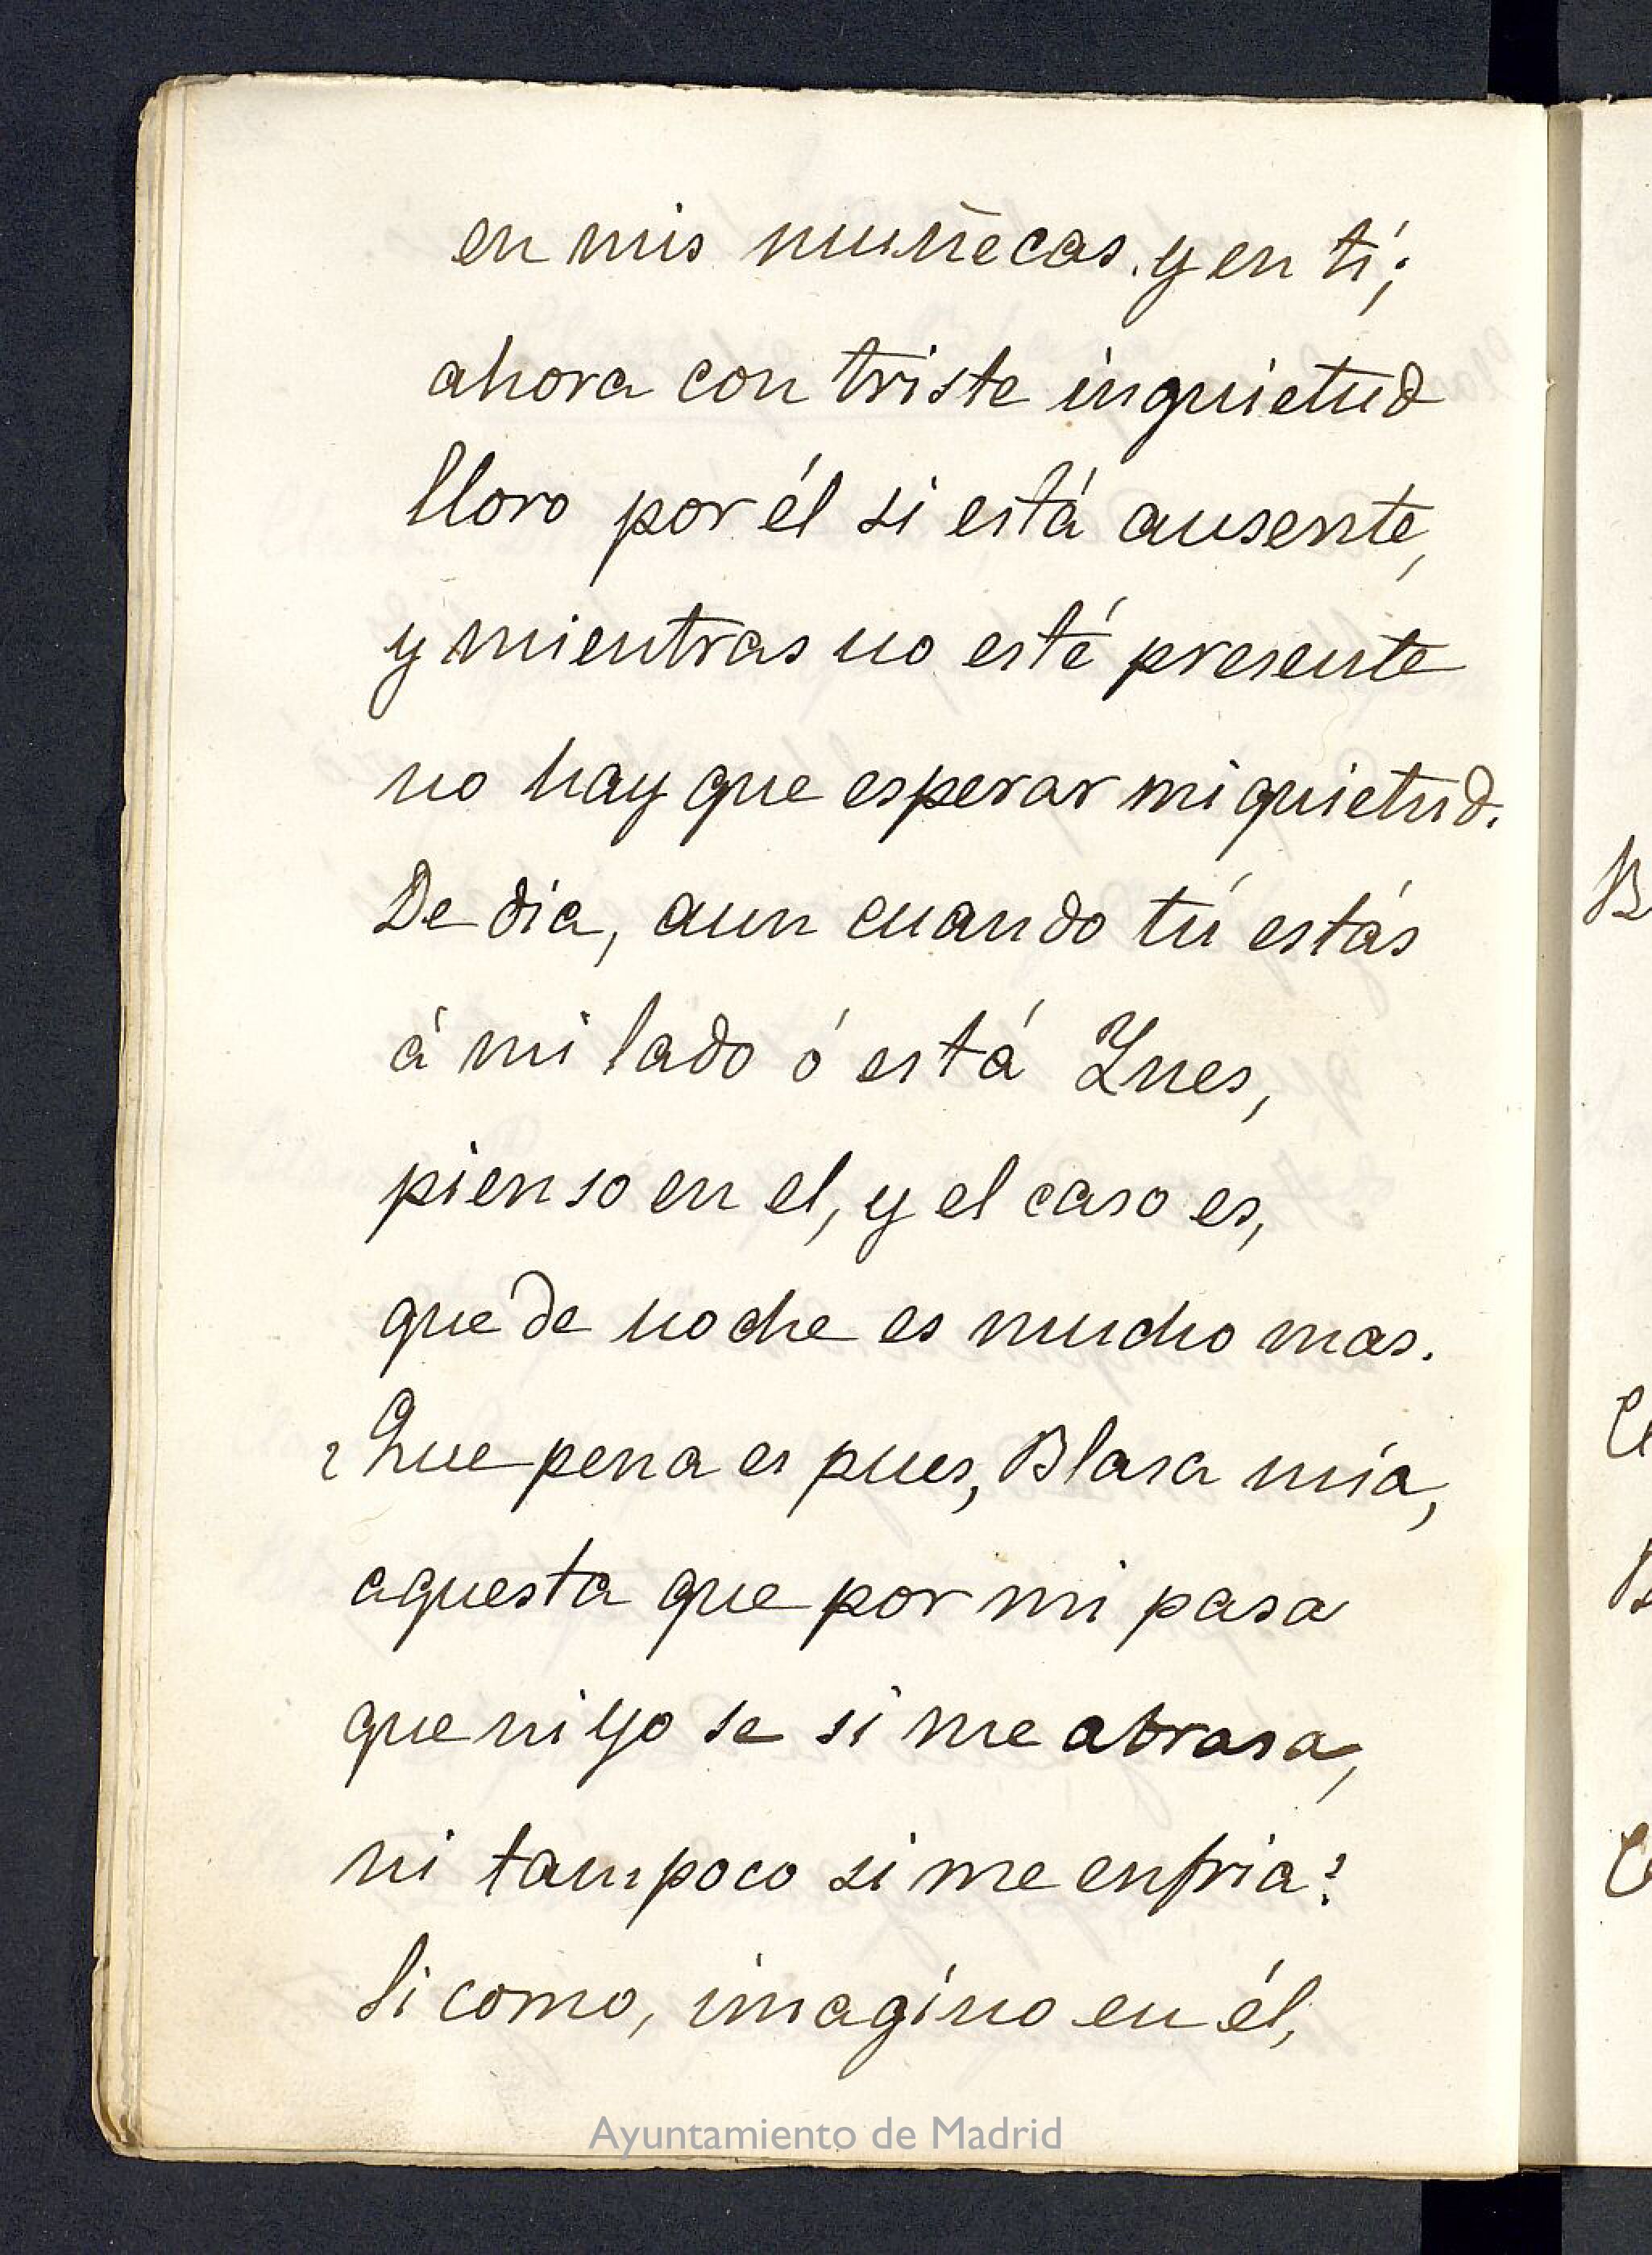 en mis muñecas, y en tí;
ahora con triste inquietud
lloro por él si está ausente,
y mientras no esté presente
no hay que esperar mi quietud.
De dia, aun cuando tú estás
á mi lado ó está Ynes,
pienso en el, y el caso es,
que de noche es mucho mas.
¿Que pena es pues, Blasa mía,
aquesta que por mi pasa
que ni yo se si me abrasa,
ni tampoco si me enfria?
Si como, imagino en él,
Ayuntamiento de Madrid